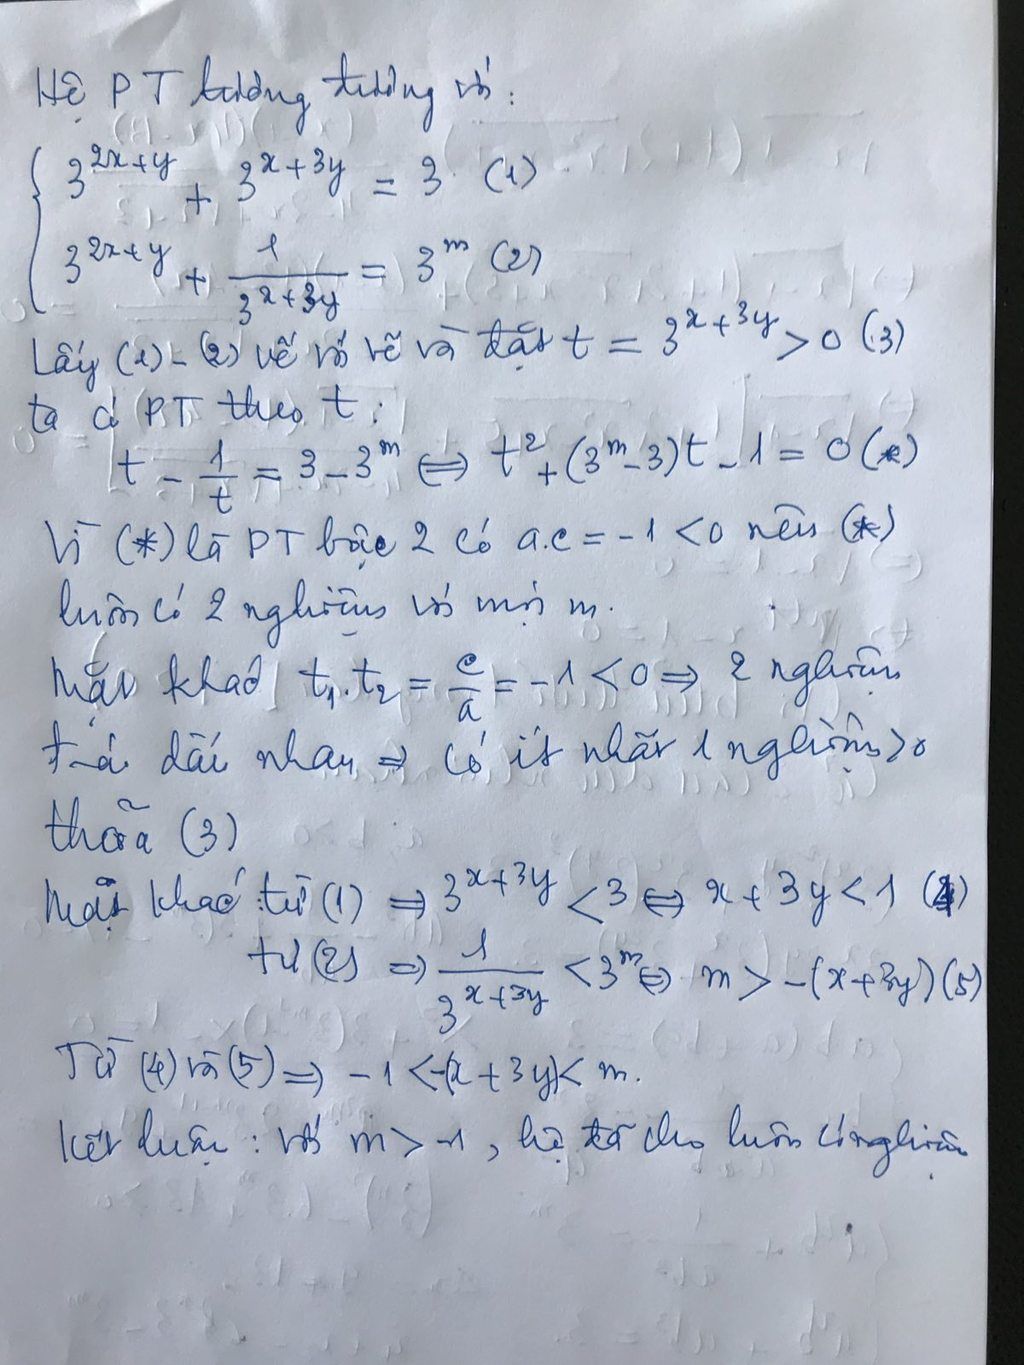 Hệ PT tương đương với:
{ 3^{2x+y} + 3^{x+3y} = 3 (1)
3^{2x+y} + \frac{1}{3^{x+3y}} = 3^m (2)
Lấy (1) - (2) vế với vế và đặt t = 3^{x+3y} > 0 (3)
ta có PT theo t:
t - \frac{1}{t} = 3 - 3^m ⇔ t^2 + (3^m - 3)t - 1 = 0 (*)
Vì (*) là PT bậc 2 có a.c = -1 < 0 nên (*)
luôn có 2 nghiệm với mọi m.
Mặt khác t_1.t_2 = \frac{c}{a} = -1 < 0 ⇒ 2 nghiệm
trái dấu nhau ⇒ có ít nhất 1 nghiệm > 0
thõa (3)
Mặt khác từ (1) ⇒ 3^{x+3y} < 3 ⇔ x + 3y < 1 (4)
từ (2) ⇒ \frac{1}{3^{x+3y}} < 3^m ⇔ m > -(x+3y) (5)
Từ (4) và (5) ⇒ -1 < -(x+3y) < m.
Kết luận: với m > -1, hệ đã cho luôn có nghiệm